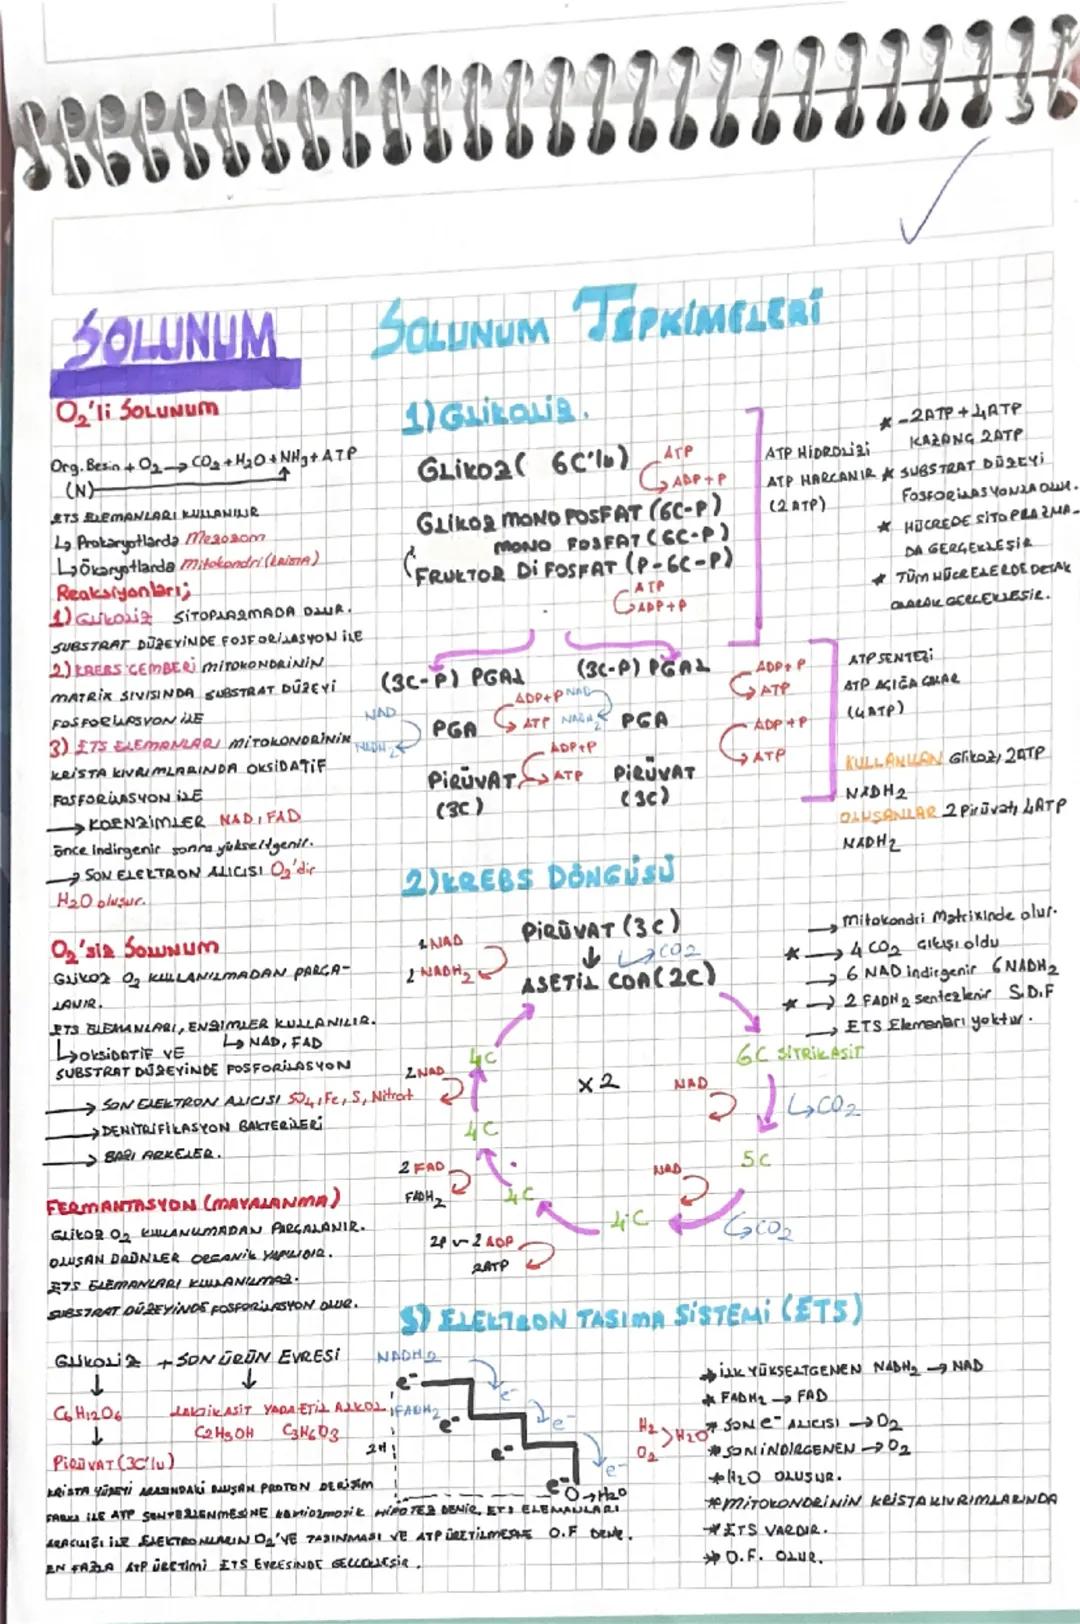 SOLUNUM
O2'li SOLUNUM
Org. Besin + O2 → CO2 + H2O + NH3 + ATP
(N)
ETS ELEMANLARI KULLANILIR
↳ Prokaryotlarda Mezozom
↳ Ökaryotlarda Mitokondri (krista)
Reaksiyonları;
1) GLİKOLİZ SİTOPLAZMADA OLUR.
SUBSTRAT DÜZEYİNDE FOSFORİLASYON İLE
2) KREBS ÇEMBERİ MİTOKONDRİNİN
MATRİX SIVISINDA SUBSTRAT DÜZEYİ
FOSFORİLASYON İLE
3) ETS ELEMANLARI MİTOKONDRİNİN
KRİSTA KIVRIMLARINDA OKSİDATİF
FOSFORİLASYON İLE
→ KOENZİMLER NAD, FAD
önce indirgenir sonra yükseltgenir.
→ SON ELEKTRON ALICISI O2'dir
H2O oluşur.
O2'siz SOLUNUM
GLİKOZ O2 KULLANILMADAN PARÇA-
LANIR.
ETS ELEMANLARI, ENZİMLER KULLANILIR.
↳ OKSİDATİF VE ↳ NAD, FAD
SUBSTRAT DÜZEYİNDE FOSFORİLASYON
→ SON ELEKTRON ALICISI SO4, Fe, S, Nitrat
→ DENİTRİFİKASYON BAKTERİLERİ
→ BAZI ARKELER.
FERMANTASYON (MAYALANMA)
GLİKOZ O2 KULLANILMADAN PARÇALANIR.
OLUŞAN ÜRÜNLER ORGANİK YAPILIDIR.
ETS ELEMANLARI KULLANILMAZ.
SUBSTRAT DÜZEYİNDE FOSFORİLASYON OLUR.
GLİKOLİZ + SON ÜRÜN EVRESİ
↓ ↓
C6H12O6 LAKTİK ASİT YADA ETİL ALKOL
↓ C2H5OH C3H6O3
PİRÜVAT (3C'lu)
SOLUNUM TEPKİMELERİ
1) GLİKOLİZ.
GLİKOZ ( 6C'lu)
ATP
ADP+P
GLİKOZ MONO FOSFAT (6C-P)
MONO FOSFAT (6C-P)
FRUKTOZ Dİ FOSFAT (P-6C-P)
ATP
ADP+P
ATP HİDROLİZİ
ATP HARCANIR
(2 ATP)
* -2ATP + 4ATP
KAZANÇ 2ATP
* SUBSTRAT DÜZEYİ
FOSFORİLASYONLA OLUR.
* HÜCREDE SİTOPLAZMA-
DA GERÇEKLEŞİR
* TÜM HÜCRELERDE ORTAK
OLARAK GERÇEKLEŞİR.
(3C-P) PGAL (3C-P) PGAL
ADP+P
ATP
NAD
NADH2
ADP+P
ATP
NAD
NADH2
PGA PGA
ADP+P
ATP
ADP+P
ATP
PİRÜVAT PİRÜVAT
(3C) (3C)
ATP SENTEZİ
ATP AÇIĞA ÇIKAR
(4ATP)
KULLANILAN Glikoz, 2ATP
NADH2
OLUŞANLAR 2 Pirüvat, 4ATP
NADH2
2) KREBS DÖNGÜSÜ
PİRÜVAT (3C)
↓ CO2
ASETİL COA (2C)
NAD
NADH2
6C SİTRİK ASİT
NAD
CO2
5C
NAD
CO2
4C
x2
2P 2 ADP
2ATP
4C
2 FAD
FADH2
4C
2 NAD
4C
→ Mitokondri Matrixinde olur.
* → 4 CO2 Çıkışı oldu
→ 6 NAD indirgenir 6 NADH2
* → 2 FADH2 sentezlenir S.D.F
→ ETS Elemanları yoktur.
3) ELEKTRON TAŞIMA SİSTEMİ (ETS)
NADH2
e-
FADH2
e-
e-
e-
2H
e-
e-
e-
O → H2O
H2
O2
> H2O
→ İLK YÜKSELTGENEN NADH2 → NAD
* FADH2 → FAD
* SON e- ALICISI → O2
* SON İNDİRGENEN → O2
* H2O OLUŞUR.
* MİTOKONDRİNİN KRİSTA KIVRIMLARINDA
* ETS VARDIR.
* O.F. OLUR.
KRİSTA YÜZEYİ ARASINDAKİ OLUŞAN PROTON DERİŞİM
FARKI İLE ATP SENTEZLENMESİNE HİPOTEZ DENİR. ETS ELEMANLARI
ARACILIĞI İLE ELEKTRONLARIN O2'YE TAŞINMASI VE ATP ÜRETİLMESİNE O.F DENİR.
EN FAZLA ATP ÜRETİMİ ETS EVRESİNDE GERÇEKLEŞİR.